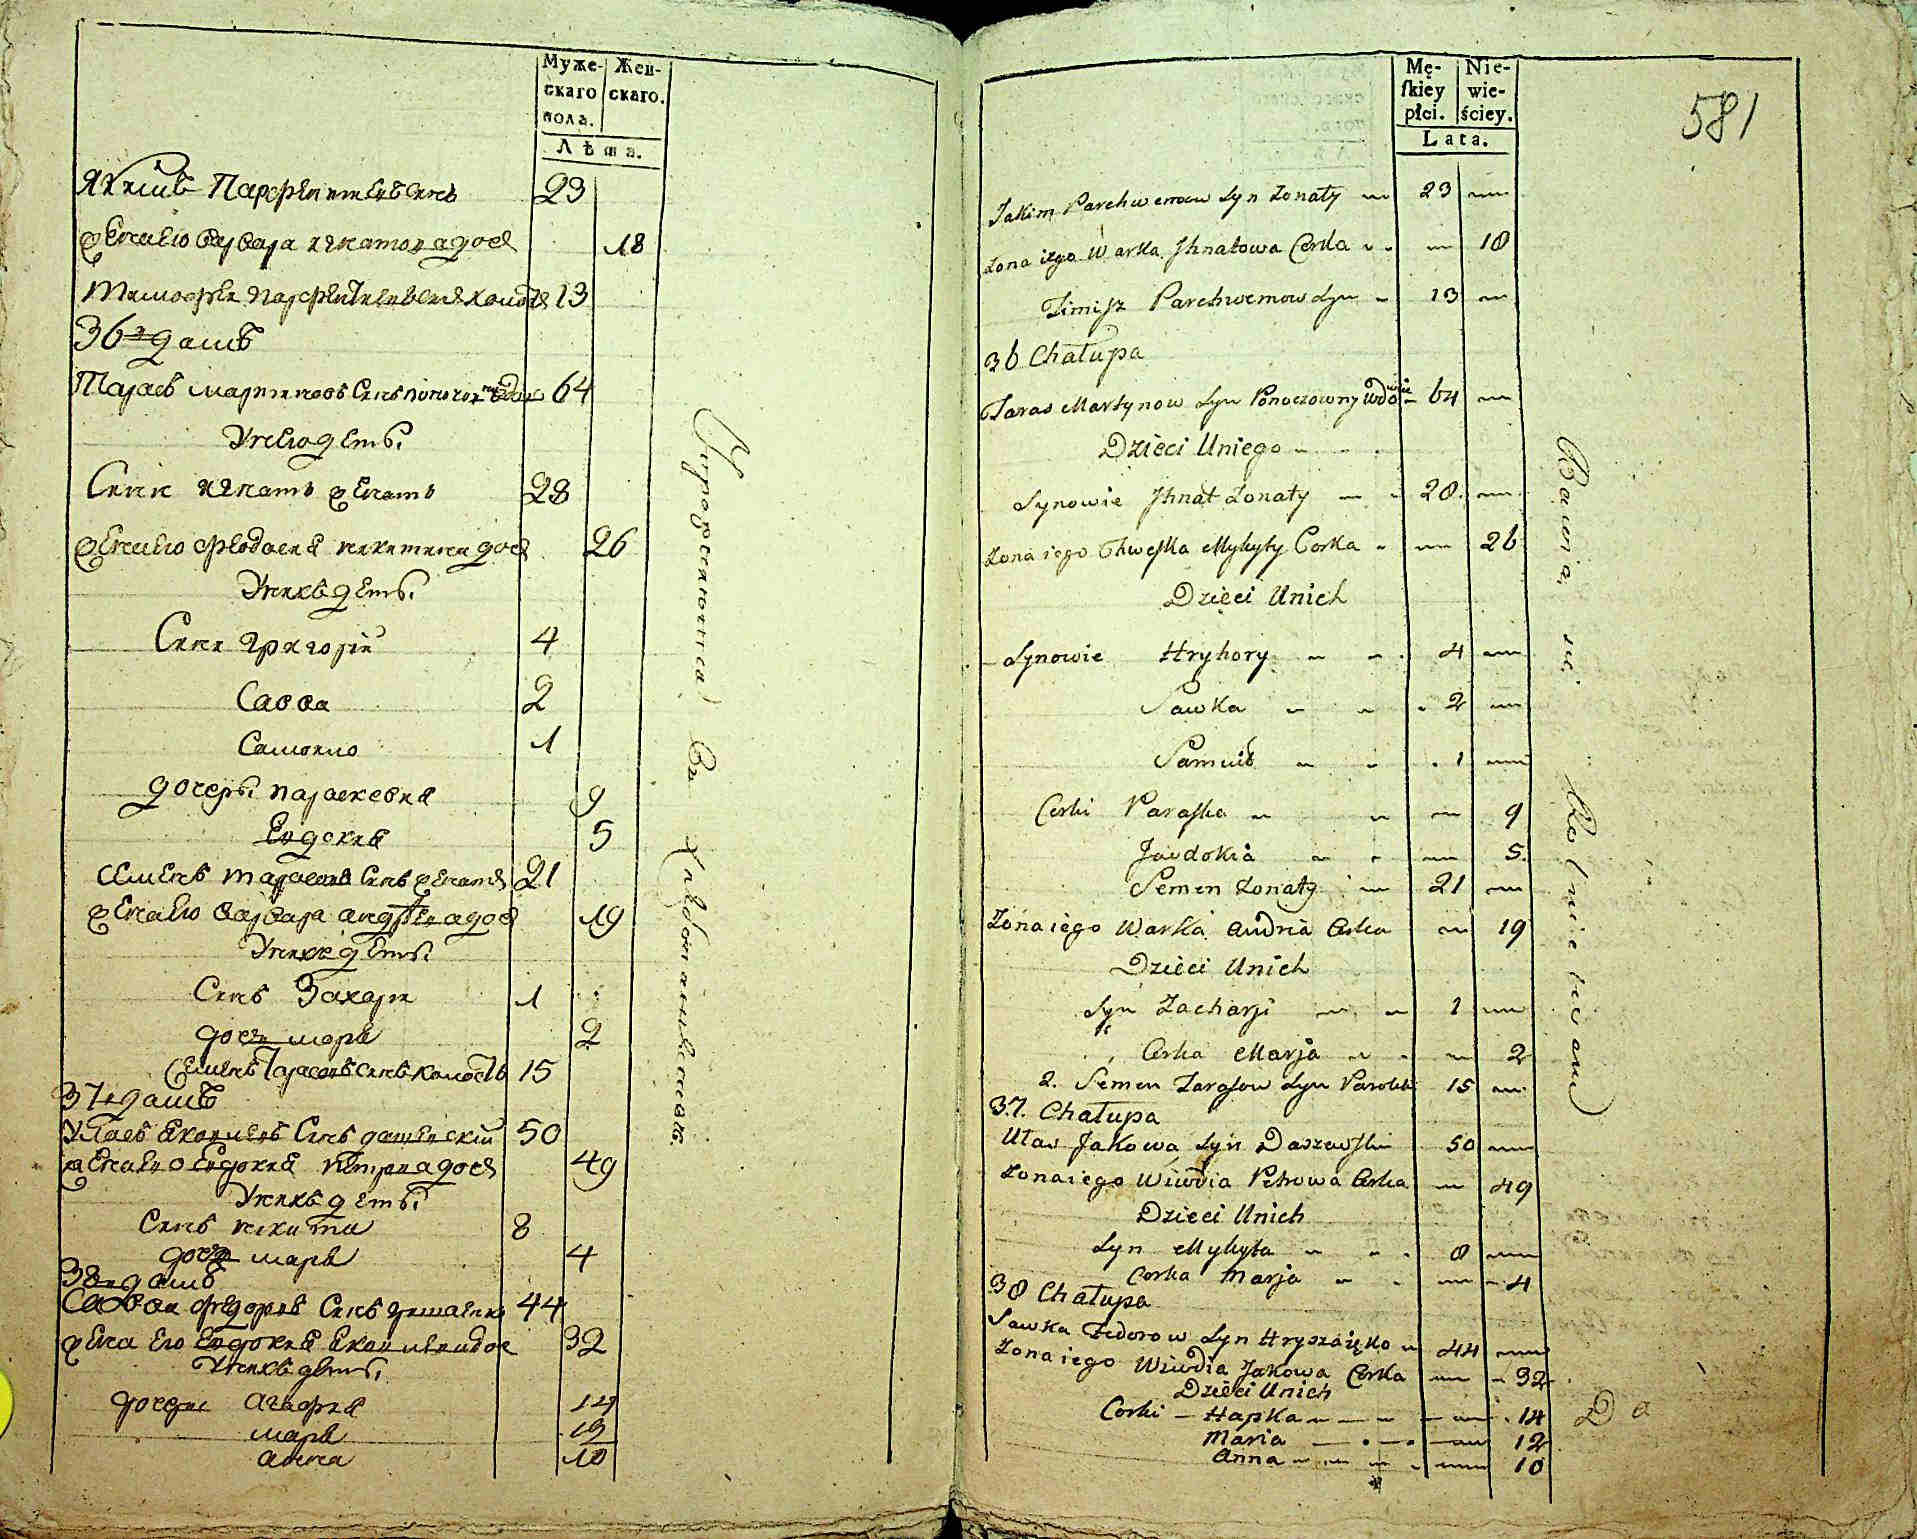 Муже-
скаго
пола.
Жен-
скаго.
Лѣта.
Якимъ Парфентиевъ сынъ 23
Жена ево Варвара Игнатова дочь 18
Тимофѣй Парфентиевъ сынъ холостъ 13
36й домъ
Тарасъ Мартиновъ Сынъ 64
У него дети
Сини Игнатъ Женатъ 28
Жена ево Федосия Никитина дочь 26
У нихъ дети
Сини Григорій 4
Савва 2
Самоило 1
дочери Параскевия 9
Евдокия 5
Семенъ Тарасовъ Синъ Женатъ 21
Жена ево Варвара Андреева дочь 19
У нихъ дети
Синъ Захари 1
дочь Маря 2
Семенъ Тарасовъ синъ холостъ 15
37й домъ
Уласъ Якимовъ Синъ Дашевский 50
Жена ево Евдокия Петрова дочь 49
У нихъ дети
Синъ Никита 8
дочь Маря 4
38й домъ
Савва Федоровъ Синъ Гришаенко 44
Жена ево Евдокия Якимова доч 32
У нихъ дети
дочери Агафия 14
Маря 12
Анна 10
Mę-
ſkiey
płci.
Nie-
wie-
ściey.
Lata.
581
Jakim Parchwemow Syn Zonaty 23
Zona iego Warka Jhnatowa Corka 18
Timisz Parchwemow Syn 13
36 Chałupa
Taras Martynow Syn Ponoczowny Wdowiec 64
Dzieci Uniego
Synowie Jhnat Zonaty 28
Zona iego Chweſka Mykyty Corka 26
Dzieci Unich
Synowie Hryhory 4
Sawka 2
Samuil 1
Corki Paraſka 9
Jawdokia 5
Semen Zonaty 21
Zona iego Warka Andria Corka 19
Dzieci Unich
Syn Zacharji 1
Corka Marja 2
2. Semen Tarasow Syn Parobek 15
37. Chałupa
Ułas Jakowa Syn Daszewſki 50
Zona iego Wiwdia Petrowa Corka 49
Dzieci Unich
Syn Mykyta 8
Corka Marja 4
38 Chałupa
Sawka Fedorow Syn Hryszaięko 44
Zona iego Wiwdia Jakowa Corka 32
Dzieci Unich
Corki Hapka 14
Maria 12
Anna 10
Bawią się